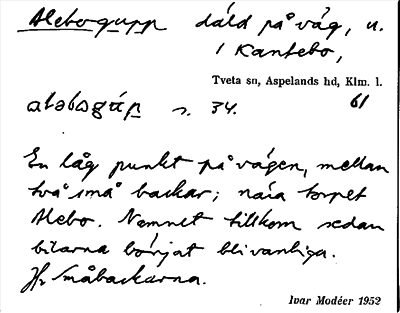 Alebogupp dåld på väg, u.
i Kantebo,
Tveta sn, Aspelands hd, Klm. l.
61
s. 34.
En låg punkt på vägen, mellan
två små backar; nära torpet
Alebo. Namnet tillkom sedan
bilarna börjat bli vanliga.
Jfr Småbackarna.
Ivar Modéer 1952